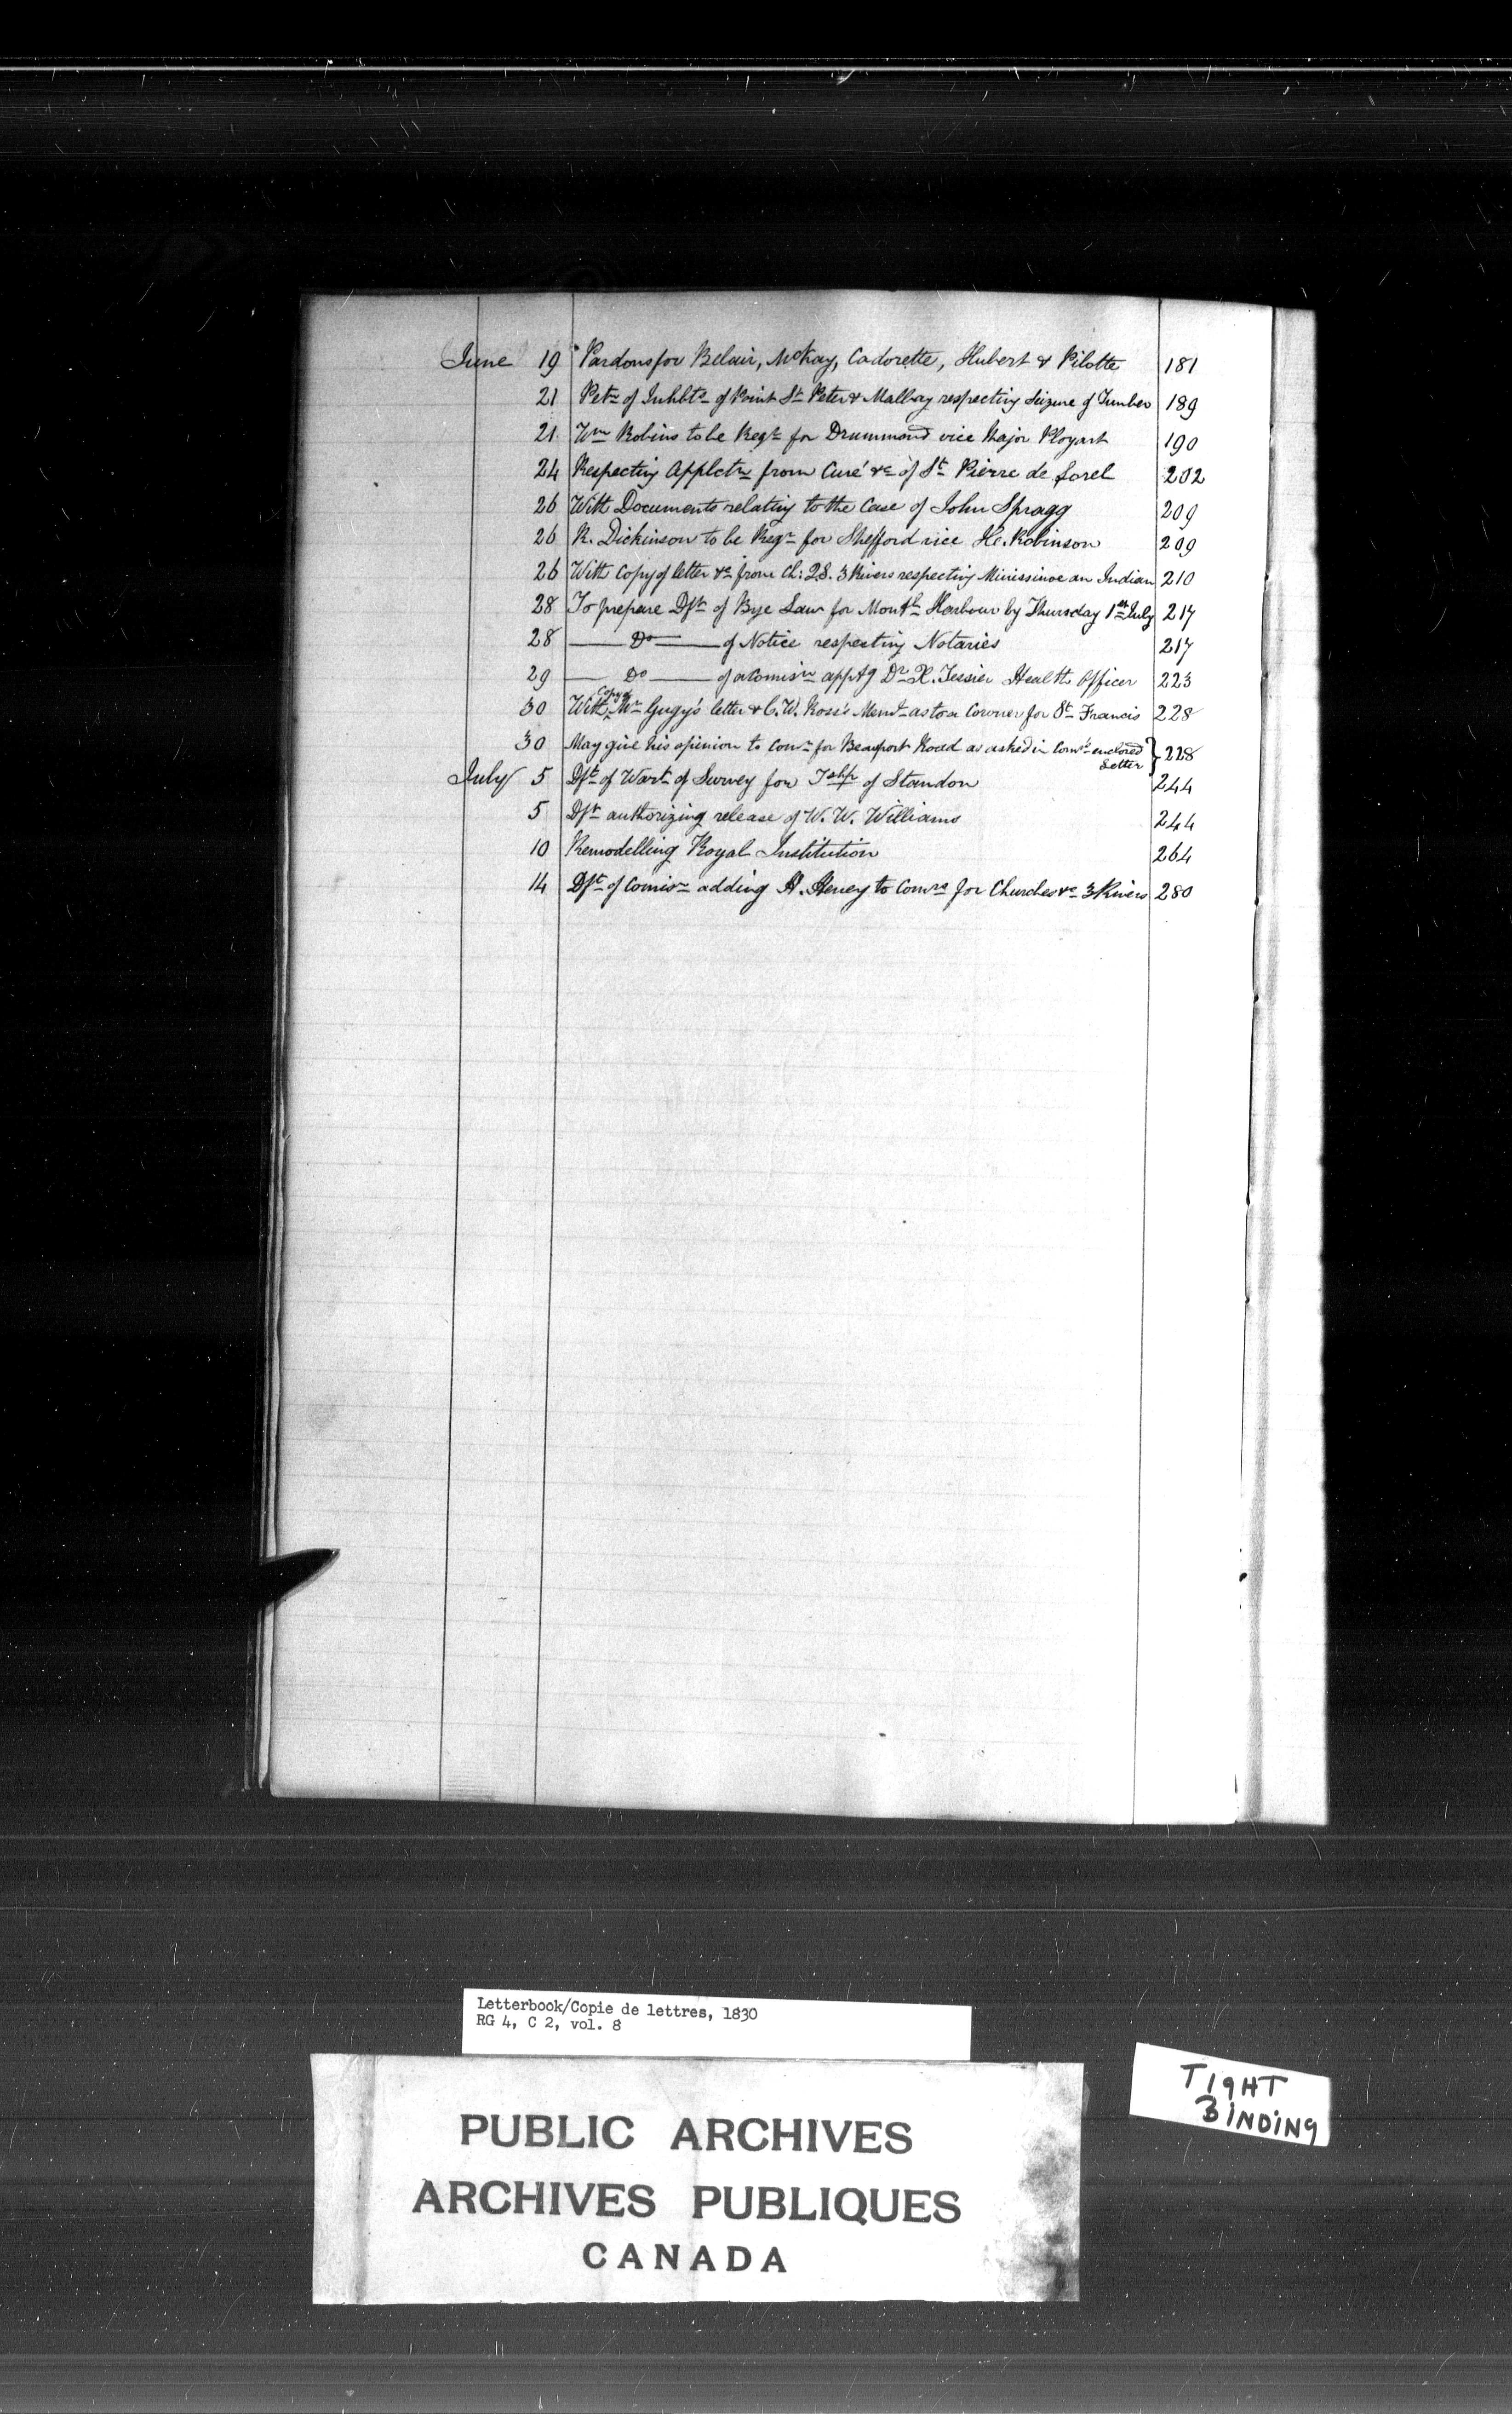 June 19 Pardons for Belair, McKay, Cadorette, Hubert & Pilotte 181
21 Petn of Inhbts of Point St Peter & Malbay respecting Seizure of Timber 189
21 Wm Robins to be Regr for Drummond vice Major Ployart 190
24 Respecting Applctn from Curé &c of St Pierre de Sorel 202
26 With Documents relating to the Case of John Spragg 209
26 R. Dickinson to be Regr for Shefford vice He. Robinson 209
26 With Copy of letter &c from Ch: Q.S. 3 Rivers respecting an Indian 210
28 To prepare Dft of Bye Law for Montl Harbour by Thursday 1st July 217
28 — Do — of Notice respecting Notaries 217
29 — Do — of a Comisn apptg Dr X. Tessier Health Officer 223
30 With Copy of Mr Gugy's letter & C. W. Ross's Meml as to a Coroner for St Francis 228
30 May give his opinion to Comrs for Beauport Road as asked in Comrs enclosed Letter } 228
July 5 Dft of Wart of Survey for Tshp of Standon 244
5 Dft authorizing release of W. W. Williams 244
10 Remodelling Royal Institution 264
14 Dft of Comisn adding H. Heney to Comrs for Churches &c 3 Rivers 280
Letterbook/Copie de lettres, 1830
RG 4, C 2, vol. 8
TIGHT
BINDING
PUBLIC ARCHIVES
ARCHIVES PUBLIQUES
CANADA